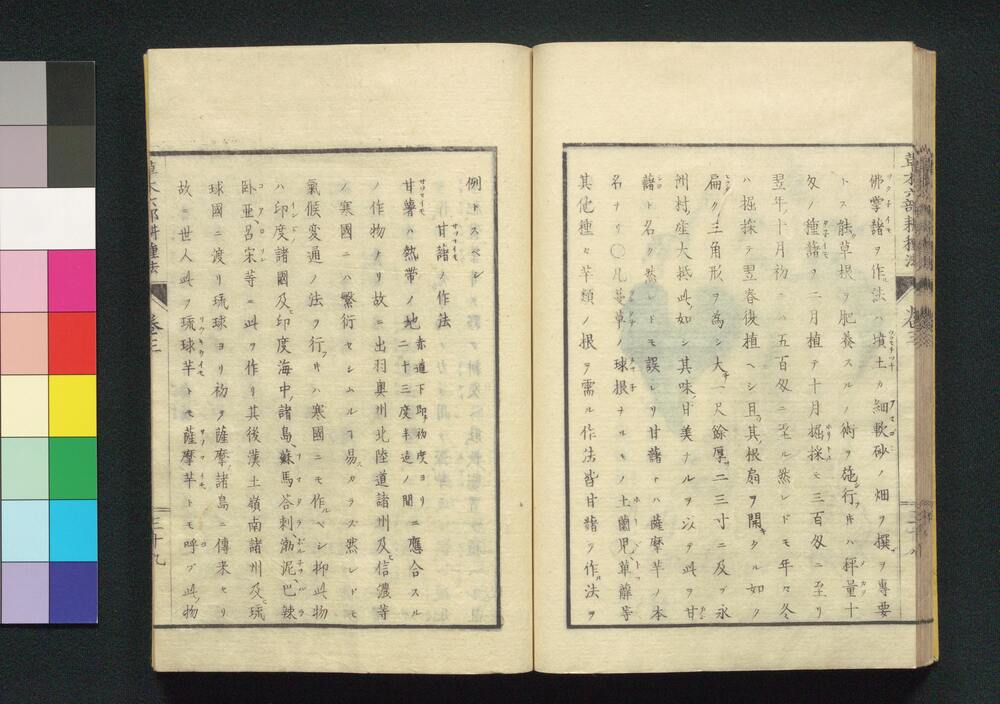 佛掌藷ヲ作ル法ハ墳土カ細軟砂ノ畑ヲ撰ヲ專要
トス能草根ヲ肥養スルノ術ヲ施行フトキハ秤量十
匁ノ種藷ヲ二月植テ十月掘採モ三百匁ニ至リ
翌年ノ十月初ニハ五百匁ニ至ル然レドモ年々冬
ハ掘採テ翌春復植ヘシ且其根扇ヲ開タル如ク
扁ク三角形ヲ為シ大サ一尺餘厚サ二三寸ニ及ブ永
洲村ノ産大抵此ノ如シ其味ヒ甘美ナルヲ以テ此ヲ甘
藷ト名ク然レドモ誤レリ甘藷トハ薩摩芋ノ本
名ナリ〇凡蔓草ノ球根ナルモノ土蘭兒萆薢等
其他種々芋類ノ根ヲ需ル作法皆甘藷ヲ作ル法ヲ
草木六部耕種法 卷三
例トスベシ
甘藷ノ作法
甘薯ハ熱帶ノ地赤道下即初度ヨリ二十三度半迄ノ間ニ應合スル
ノ作物ナリ故ニ出羽奥州北陸道諸州及ヒ信濃等
ノ寒國ニハ繁衍セシムルヿ易カラズ然レドモ
氣候変通ノ法ヲ行フトキハ寒國ニモ作ルベシ抑此物
ハ印度諸國及ヒ印度海中ノ諸島蘇馬荅刺渤泥巴辣
卧亜呂宋等ニ此ヲ作リ其後漢土嶺南諸州及ヒ琉
球國ニ渡リ琉球ヨリ初テ薩摩ノ諸島ニ傳来セリ
故ニ世人此ヲ琉球芋トモ薩摩芋トモ呼ブ此物
草木六部耕種法 卷三 三十九